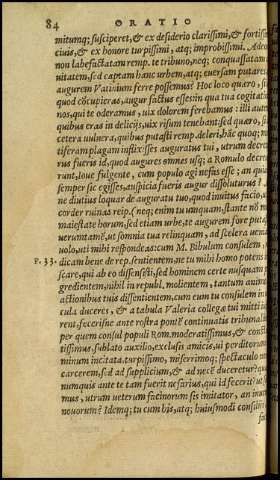 84 ORATIO
mitumq; susciperet, & ex desiderio clarissimi, & fortiss
ciuis, & ex honore turpissimi, atq; improbissimi. Adeo
non labefactatam remp. te tribuno, neq; conquassatam
uitatem, sed captam hanc urbem, atq; euersam putares
augurem Vatinium ferre possemus? Hoc loco quæro, si
quod cōcupieras, augur factus esses in qua tua cogitati
nos, qui te oderamus, uix dolorem ferebamus: illi aut
quibus eras in delicijs, uix risum tenebant: sed quæro, si
cetera uulnera, quibus putasti remp. deleri, hāc quoq; m
tiferam plagam inflixisses auguratus tui, utrum decre
rus fueris id, quod augures omnes usq; a Romulo decre
runt, Ioue fulgente, cum populo agi nefas esse; an qui
semper sic egisses, auspicia fueris augur dissoluturus?
ne diutius loquar de auguratu tuo, quod inuitus facio, u
cordor ruinas reip. (neq; enim tu unquam, stante nō m
maiestate horum, sed etiam urbe, te augurem fore puta
ueruntamē, ut somnia tua relinquam, ad scelera uenia
uolo, uti mihi respondeas: cum M. Bibulum consulem,
P. 33. dicam bene de rep. sentientem, ne tu mihi homo potens
scare, qui ab eo dissensisti, sed hominem certe nusquam p
gredientem, nihil in republ. molientem, tantum animo
actionibus tuis dissentientem, cum eum tu consulem in
cula duceres, & a tabula Valeria collegæ tui mitti
rent, fecerisne ante rostra pontē continuatis tribunal
per quem consul populi Rom. moderatissimus, & const
tissimus, sublato auxilio, exclusis amicis, ui perditorum
minum incitata, turpissimo, miserrimoq; spectaculo no
carcerem, sed ad supplicium, & ad necē duceretur? quæ
numquis ante te tam fuerit nefarius, qui id fecerit? ut
mus, utrum ueterum facinorum sis imitator, an inuen
nouorum? Idemq; tu cum his, atq; huiusmodi consilijs